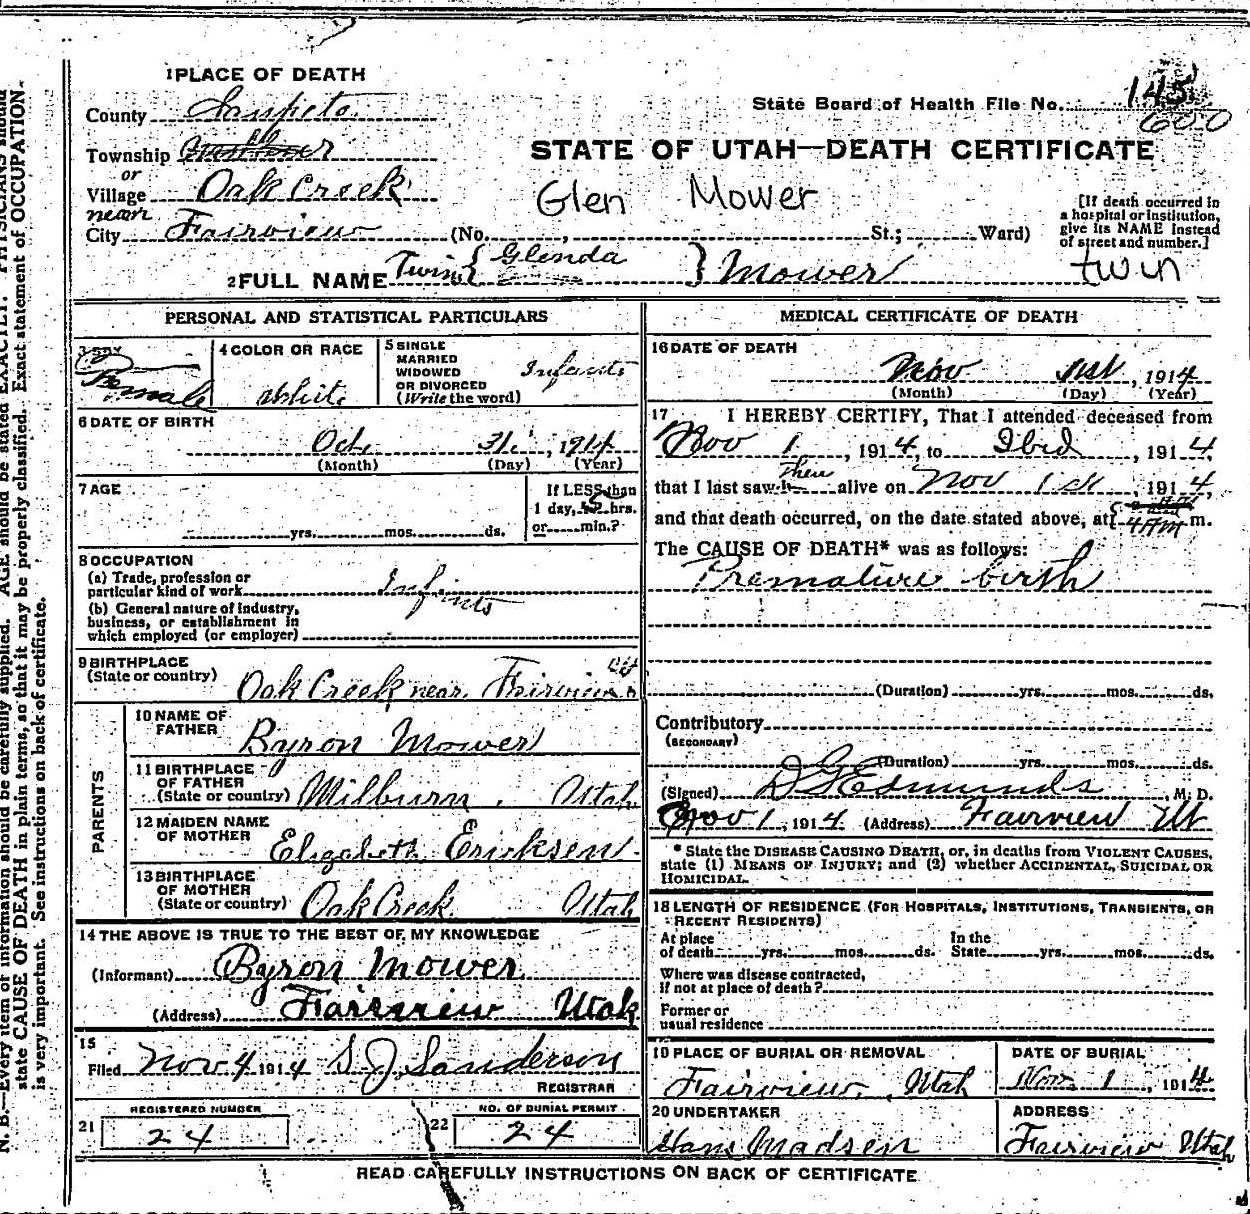 1 PLACE OF DEATH
County Sanpete
State Board of Health File No. 145
600
Township
or
Village Oak Creek
near
City Fairview (No. , St.; Ward)
STATE OF UTAH—DEATH CERTIFICATE
Glen Mower
[If death occurred in
a hospital or institution,
give its NAME instead
of street and number.]
twin
2 FULL NAME Twins { Glenda } Mower
PERSONAL AND STATISTICAL PARTICULARS
3 SEX
Female
4 COLOR OR RACE
white
5 SINGLE
MARRIED
WIDOWED
OR DIVORCED
(Write the word)
Infants
6 DATE OF BIRTH
Oct. 31. , 1914
(Month) (Day) (Year)
7 AGE
yrs. mos. ds.
If LESS than
1 day, hrs.
or min.?
8 OCCUPATION
(a) Trade, profession or
particular kind of work
Infants
(b) General nature of industry,
business, or establishment in
which employed (or employer)
9 BIRTHPLACE
(State or country)
Oak Creek near Fairview
PARENTS
10 NAME OF
FATHER
Byron Mower
11 BIRTHPLACE
OF FATHER
(State or country) Milburn, Utah
12 MAIDEN NAME
OF MOTHER
Elizabeth Ericksen
13 BIRTHPLACE
OF MOTHER
(State or country) Oak Creek Utah
14 THE ABOVE IS TRUE TO THE BEST OF MY KNOWLEDGE
(Informant) Byron Mower
(Address) Fairview Utah
15
Filed Nov 4 1914 S. J. Sanderson
REGISTRAR
21
REGISTERED NUMBER
24
22
NO. OF BURIAL PERMIT
24
MEDICAL CERTIFICATE OF DEATH
16 DATE OF DEATH
Nov 1st , 1914
(Month) (Day) (Year)
17 I HEREBY CERTIFY, That I attended deceased from
Nov 1 , 1914, to Ibid , 1914,
that I last saw them alive on Nov 1st , 1914,
and that death occurred, on the date stated above, at 4 AM m.
The CAUSE OF DEATH* was as follows:
Premature birth
(Duration) yrs. mos. ds.
Contributory
(SECONDARY)
(Duration) yrs. mos. ds.
(Signed) D G Edmunds M. D.
Nov 1, 1914 (Address) Fairview Ut
* State the DISEASE CAUSING DEATH, or, in deaths from VIOLENT CAUSES,
state (1) MEANS OF INJURY; and (2) whether ACCIDENTAL, SUICIDAL OR
HOMICIDAL.
18 LENGTH OF RESIDENCE (FOR HOSPITALS, INSTITUTIONS, TRANSIENTS, OR
RECENT RESIDENTS)
At place
of death yrs. mos. ds.
In the
State yrs. mos. ds.
Where was disease contracted,
if not at place of death?
Former or
usual residence
19 PLACE OF BURIAL OR REMOVAL
Fairview, Utah
DATE OF BURIAL
Nov 1 , 1914
20 UNDERTAKER
Hans Madsen
ADDRESS
Fairview Utah
READ CAREFULLY INSTRUCTIONS ON BACK OF CERTIFICATE
N. B.—Every item of information should be carefully supplied. AGE should be stated EXACTLY. PHYSICIANS should
state CAUSE OF DEATH in plain terms, so that it may be properly classified. Exact statement of OCCUPATION
is very important. See instructions on back of certificate.